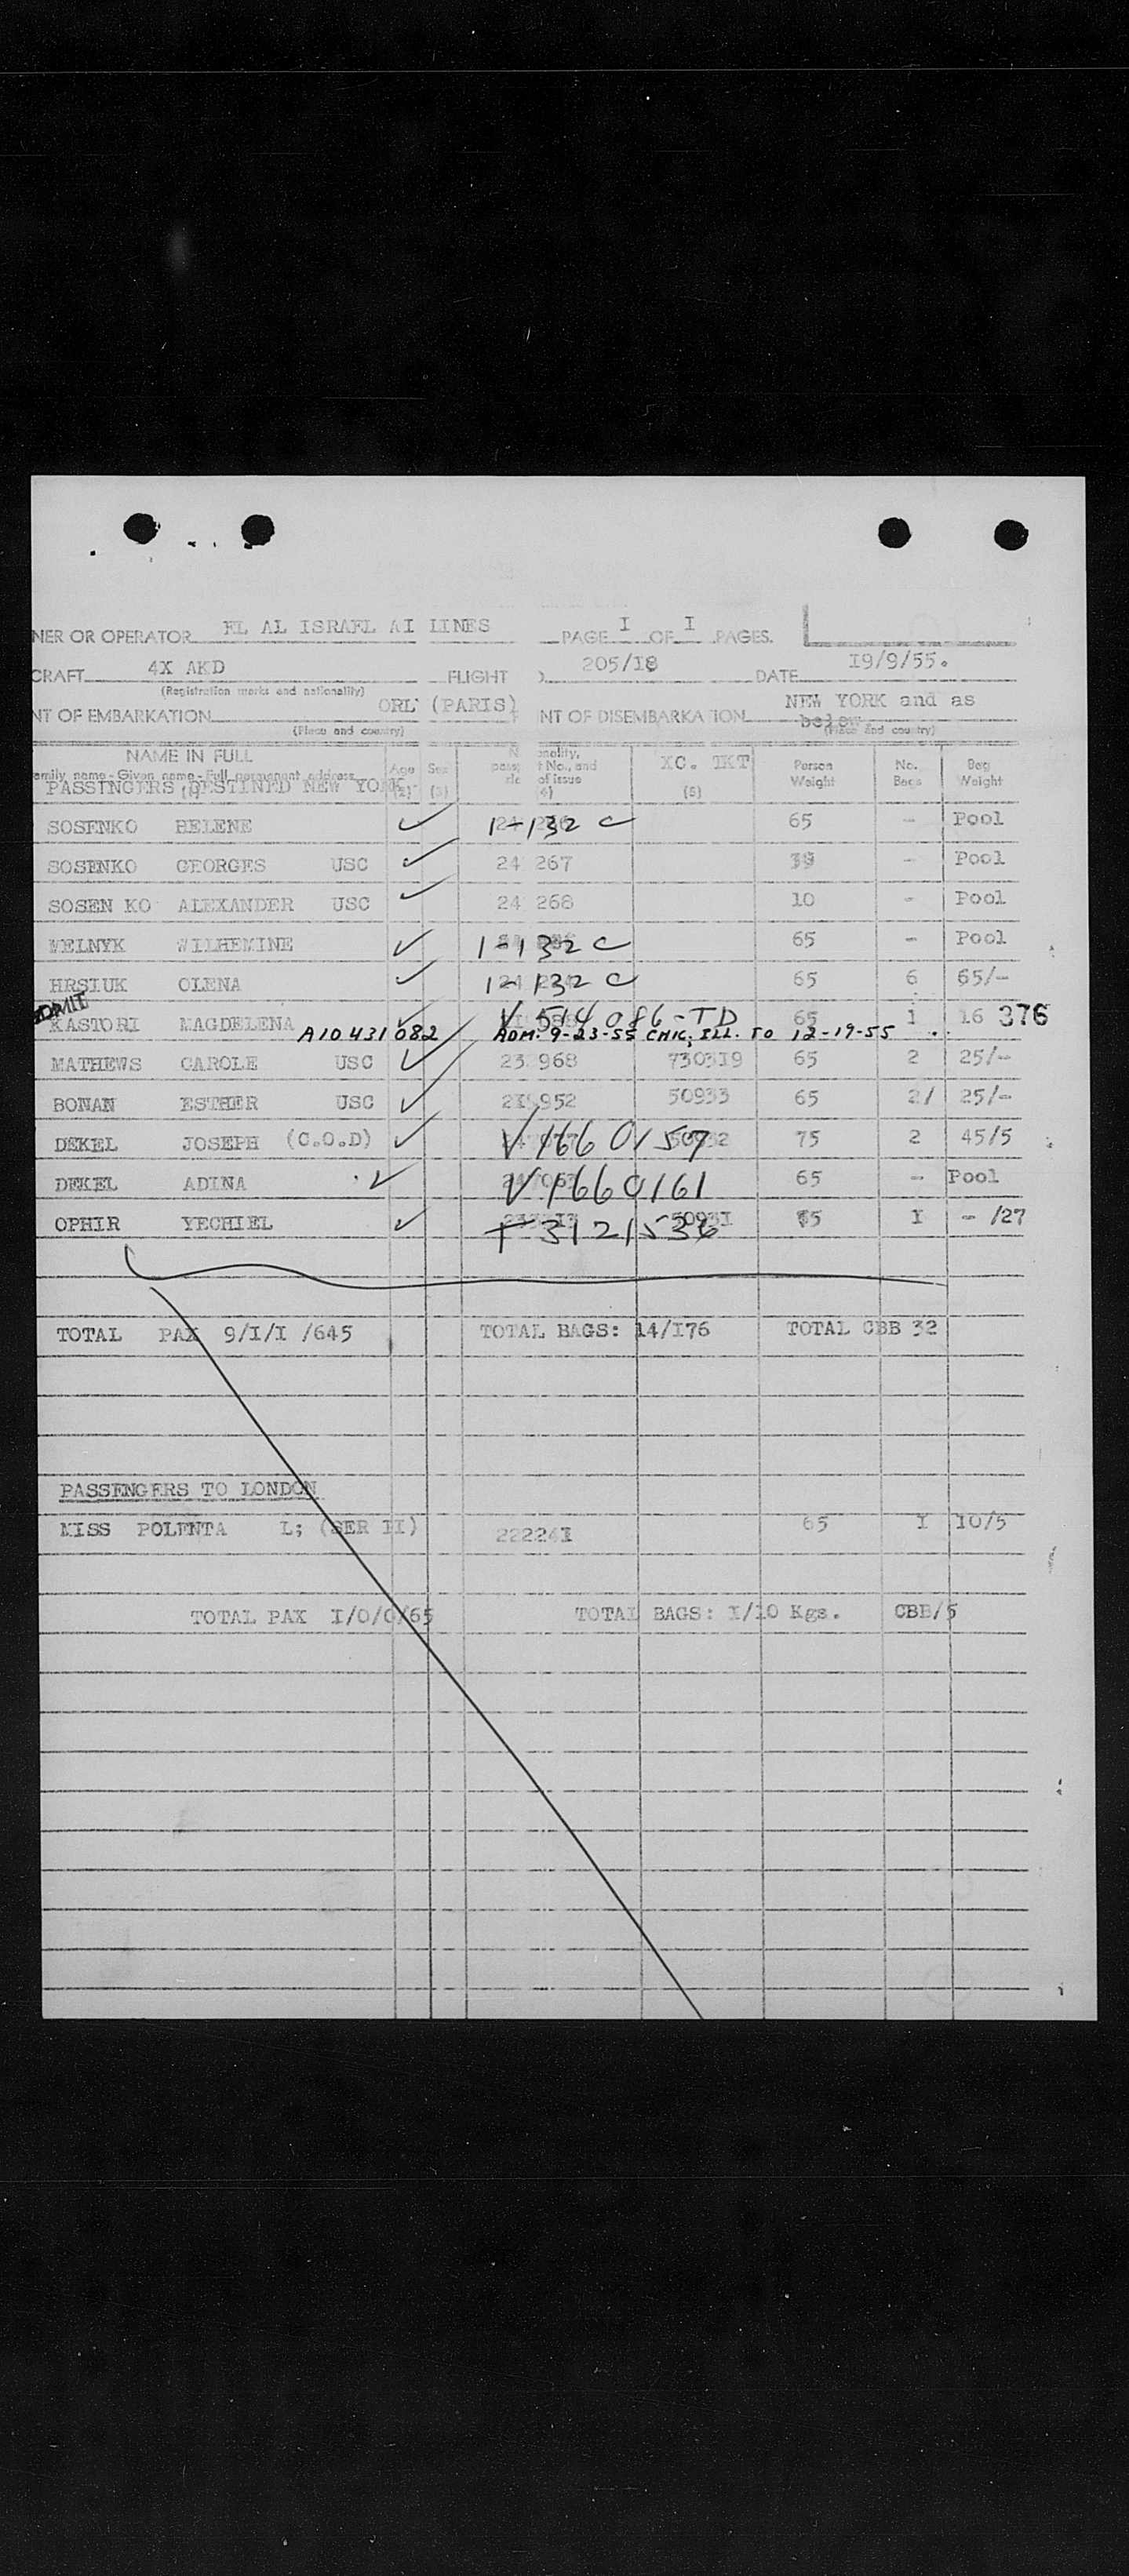 NER OR OPERATOR EL AL ISRAEL AI LINES PAGE I OF I PAGES.
CRAFT 4X AKD FLIGHT 205/18 DATE 19/9/55.
(Registration marks and nationality)
NT OF EMBARKATION ORL (PARIS) NT OF DISEMBARKATION NEW YORK and as below
(Place and country) (Place and country)
NAME IN FULL Age Sex No., and XC. TKT Person No. Bag
amily name - Given name - Full permanent address (2) (3) of issue (5) Weight Bags Weight
PASSENGERS DESTINED NEW YORK
SOSENKO HELENE 1-132 C 65 - Pool
SOSENKO GEORGES USC 24 267 39 - Pool
SOSEN KO ALEXANDER USC 24 268 10 - Pool
WELNYK WILHEMINE 1-132 C 65 - Pool
HRSIUK OLENA 1-132 C 65 6 65/-
ADMIT
KASTORI MAGDELENA V 514 086-TD 65 1 16 376
A10 431 082 ADM. 9-23-55 CHIC, ILL. TO 12-19-55
MATHEWS CAROLE USC 23 968 730319 65 2 25/-
BONAN ESTHER USC 50933 65 2/ 25/-
DEKEL JOSEPH (C.O.D) V1660157 75 2 45/5
DEKEL ADINA V1660161 65 - Pool
OPHIR YECHIEL T-3121536 50931 I - /27
TOTAL PAX 9/I/I /645 TOTAL BAGS: 14/I76 TOTAL CBB 32
PASSENGERS TO LONDON
MISS POLENTA L; (SER II) 222241 65 I 10/5
TOTAL PAX I/0/0/65 TOTAL BAGS: I/10 Kgs. CBB/5